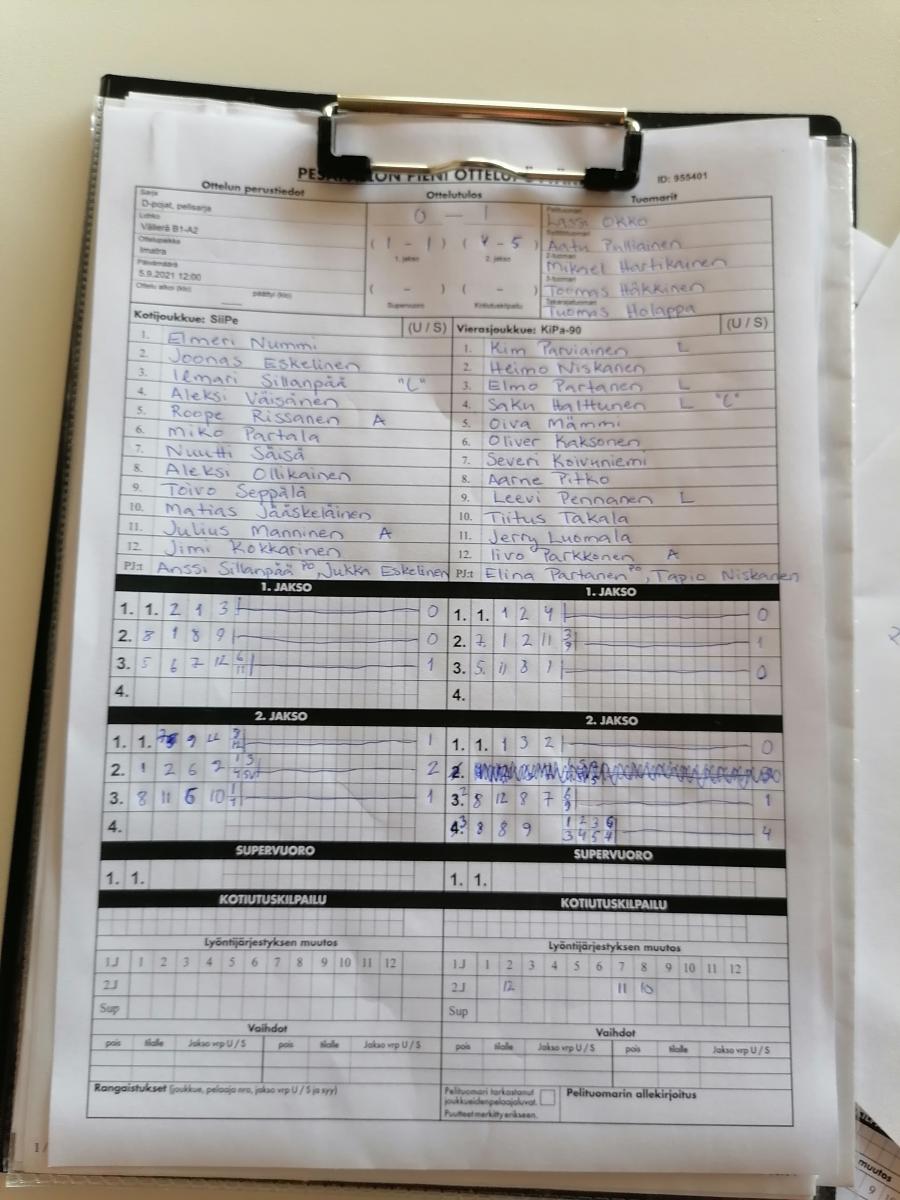 OTTELU
ID: 955401
Ottelun perustiedot
Ottelutulos
Tuomarit
Sarja
D-pojat, pelisarja
Lohko
Välierä B1-A2
Ottelupaikka
Imatra
Päivämäärä
5.9.2021 12:00
Ottelu alkoi (klo) päättyi (klo)
0 — 1
( 1 - 1 ) ( 4 - 5 )
1. jakso 2. jakso
( - ) ( - )
Supervuoro Kotiutuskilpailu
Pelituomari
Lassi Okko
Aatu Pulliainen
2-tuomari
Mikael Hartikainen
3-tuomari
Toomas Häkkinen
Takarajatuomari
Tuomas Holappa
Kotijoukkue: SiiPe (U / S)
1. Elmeri Nummi
2. Joonas Eskelinen
3. Ilmari Sillanpää "C"
4. Aleksi Väisänen
5. Roope Rissanen A
6. Miko Partala
7. Nuutti Säisä
8. Aleksi Ollikainen
9. Toivo Seppälä
10. Matias Jääskeläinen
11. Julius Manninen A
12. Jimi Kokkarinen
PJ:t Anssi Sillanpää PO, Jukka Eskelinen
Vierasjoukkue: KiPa-90 (U / S)
1. Kim Parviainen L
2. Heimo Niskanen
3. Elmo Partanen L
4. Saku Halttunen L "C"
5. Oiva Mämmi
6. Oliver Kaksonen
7. Severi Koivuniemi
8. Aarne Pitko
9. Leevi Pennanen L
10. Tiitus Takala
11. Jerry Luomala
12. Iivo Parkkonen A
PJ:t Elina Partanen PO, Tapio Niskanen
1. JAKSO
1. 1. 2 1 3 0
2. 8 1 8 9 0
3. 5 6 7 12 6 11 1
4.
1. JAKSO
1. 1. 1 2 4 0
2. 7. 1 2 11 3 9 1
3. 5. 11 3 1 0
4.
2. JAKSO
1. 1. 9 1
2. 1 2 6 2 2
3. 8 11 6 10 1
4.
2. JAKSO
1. 1. 1 3 2 0
2.
3. 2 8 12 8 7 6 9 1
4. 3 8 8 9 1 2 3 6 3 4 5 7 4
SUPERVUORO
1. 1.
SUPERVUORO
1. 1.
KOTIUTUSKILPAILU
KOTIUTUSKILPAILU
Lyöntijärjestyksen muutos
1J 1 2 3 4 5 6 7 8 9 10 11 12
2J
Sup
Lyöntijärjestyksen muutos
1J 1 2 3 4 5 6 7 8 9 10 11 12
2J 12 11 10
Sup
Vaihdot
pois tilalle Jakso vrp U / S pois tilalle Jakso vrp U / S
Vaihdot
pois tilalle Jakso vrp U / S pois tilalle Jakso vrp U / S
Rangaistukset (joukkue, pelaaja nro, jakso vrp U / S ja syy)
Pelituomari tarkastanut
joukkueidenpelaajaluvat.
Puutteet merkitty erikseen.
Pelituomarin allekirjoitus
1 /
muutos
9